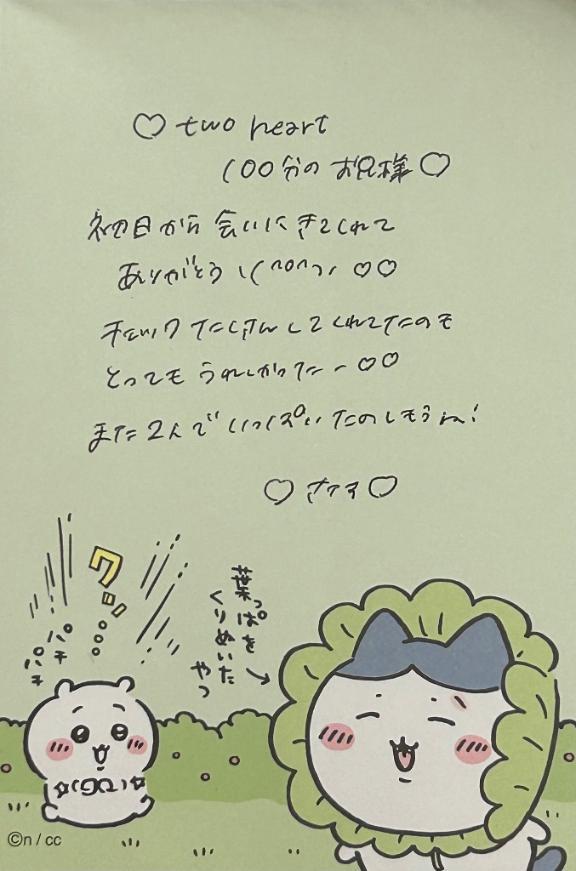 ♡ two heart
100分のお兄様♡
初日から会いにきてくれて
ありがとう\(^o^)/ ♡♡
たくさんしてくれてたのも
とってもうれしかったー♡♡
また2人でいっぱいたのしもうね!
ワッ…
パチ
パチ
葉っぱを
くりぬいた
やつ
©n / cc